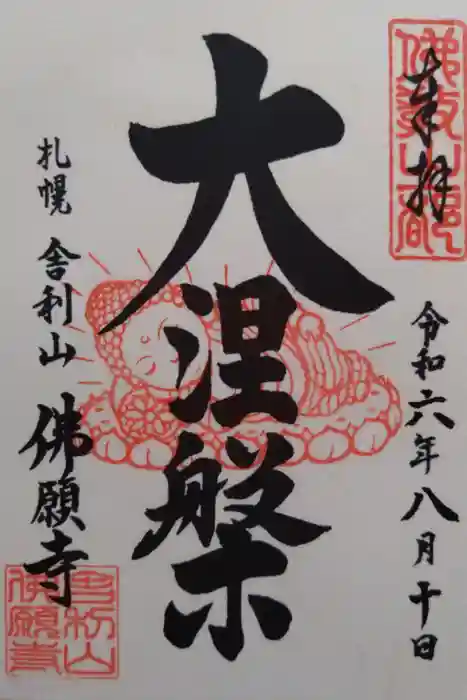 奉拝
佛教山都
令和六年八月十日
大涅槃
札幌 舎利山 佛願寺
舎利山
佛願寺